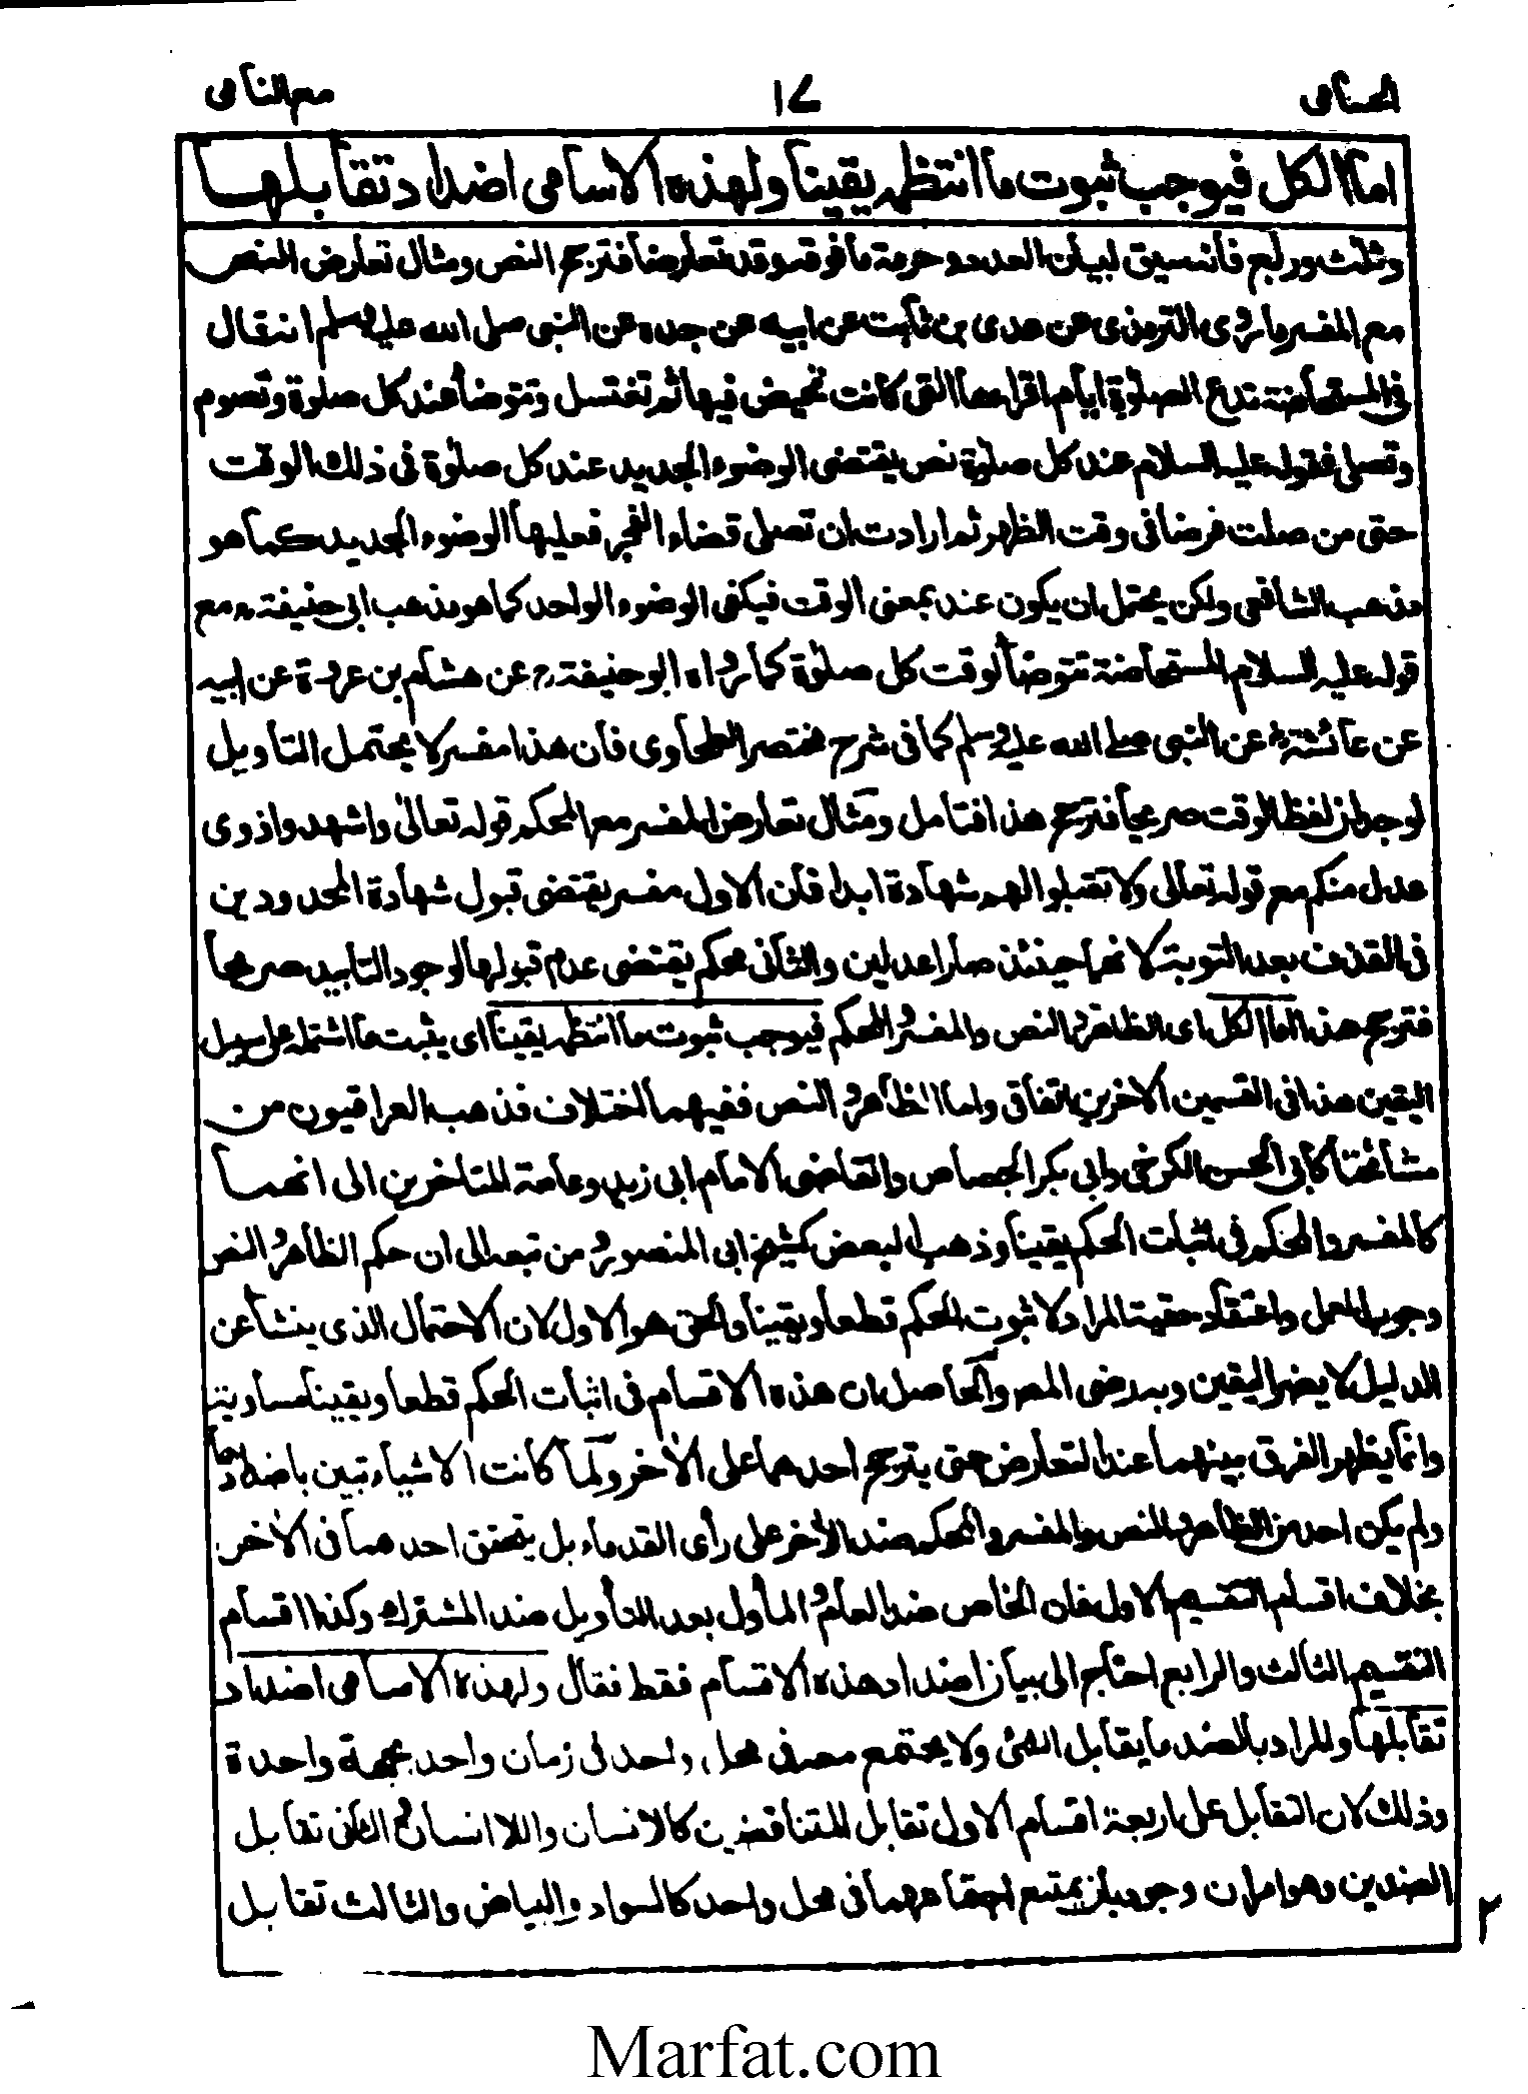 الحسامی ١٧ مع النامی
اما الكل فيوجب ثبوت ما انتظمه يقينا ولهذه الاسامى اضداد تقابلها
وثلث وربع فانه سيق لبيان العدد وحرمة ما فوقه وقد تعارضا فترجح النص ومثال تعارض النص
مع المفسر ما روى الترمذى عن عدى بن ثابت عن ابيه عن جده عن النبى صلى الله عليه وسلم انه قال
فى المستحاضة تدع الصلوة ايام اقرائها التى كانت تحيض فيها ثم تغتسل وتتوضأ عند كل صلوة وتصوم
وتصلى فقوله عليه السلام عند كل صلوة نص يقتضى الوضوء الجديد عند كل صلوة فى ذلك الوقت
حتى من صلت فرضا فى وقت الظهر ثم ارادت ان تصلى قضاء الفجر فعليها الوضوء الجديد كما هو
مذهب الشافعى ولكن يحتمل ان يكون عند بمعنى الوقت فيكفى الوضوء الواحد كما هو مذهب ابى حنيفة رح مع
قوله عليه السلام المستحاضة تتوضأ لوقت كل صلوة كما رواه ابو حنيفة رح عن هشام بن عروة عن ابيه
عن عائشة رض عن النبى صلے الله عليه وسلم كما فى شرح مختصر الطحاوى فان هذا مفسر لا يحتمل التاويل
لوجدان لفظ الوقت صريحا فترجح هذا فتامل ومثال تعارض المفسر مع المحكم قوله تعالى واشهدوا ذوى
عدل منكم مع قوله تعالى ولا تقبلوا لهم شهادة ابدا فان الاول مفسر يقتضى قبول شهادة المحدودين
فى القذف بعد التوبة لانهما حينئذ صارا عدلين والثانى محكم يقتضى عدم قبولها لوجود التابيد صريحا
فترجح هذا اما الكل اى الظاهر والنص والمفسر والمحكم فيوجب ثبوت ما انتظمه يقينا اى يثبت ما اشتمله على سبيل
اليقين هذا فى القسمين الاخرين اتفاق واما الظاهر والنص ففيهما اختلاف فذهب العراقيون من
مشائخنا كابى الحسن الكرخى وابى بكر الجصاص والقاضى الامام ابى زيد وعامة المتاخرين الى انهما
كالمفسر والمحكم فى اثبات الحكم يقينا وذهب البعض كشيخ ابى المنصور ومن تبعه الى ان حكم الظاهر والنص
وجوب العمل واعتقاد حقية المراد لا ثبوت الحكم قطعا ويقينا والحق هو الاول لان الاحتمال الذى ينشأ عن
الدليل لا يضر اليقين وبه رضى المصر والحاصل ان هذه الاقسام فى اثبات الحكم قطعا ويقينا مساوية
وانما يظهر الفرق بينهما عند التعارض حتى يترجح احدهما على الاخر ولما كانت الاشياء تبين باضدادها
ولم يكن احد من الظاهر والنص والمفسر والمحكم ضد الأخر على رأى القدماء بل يتحقق احدهما فى الأخر
بخلاف اقسام التقسيم الاول فان الخاص ضد العام والمأول بعد التأويل ضد المشترك وكذا اقسام
التقسيم الثالث والرابع احتاج الى بيان اضداد هذه الاقسام فقط فقال ولهذه الاسامى اضداد
تقابلها والمراد بالضد ما يقابل الشئ ولا يجتمع معه فى محل واحد فى زمان واحد بجهة واحدة
وذلك لان التقابل على اربعة اقسام الاول تقابل المتناقضين كالانسان واللا انسان والثانى تقابل
الضدين وهو امران وجوديان يمتنع اجتماعهما فى محل واحد كالسواد والبياض والثالث تقابل
٢
Marfat.com